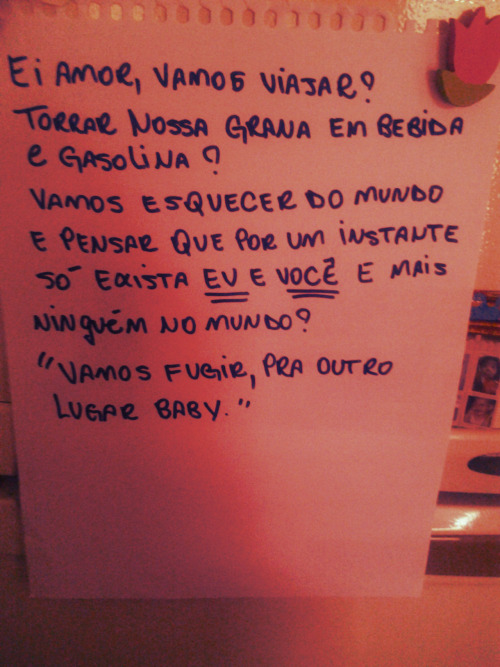 Ei AMOR, VAMOS VIAJAR?
TORRAR NOSSA GRANA EM BEBIDA
E GASOLINA?
VAMOS ESQUECER DO MUNDO
E PENSAR QUE POR UM INSTANTE
SÓ EXISTA EU E VOCÊ E MAIS
NINGUÉM NO MUNDO?
"VAMOS FUGIR, PRA OUTRO
LUGAR BABY."